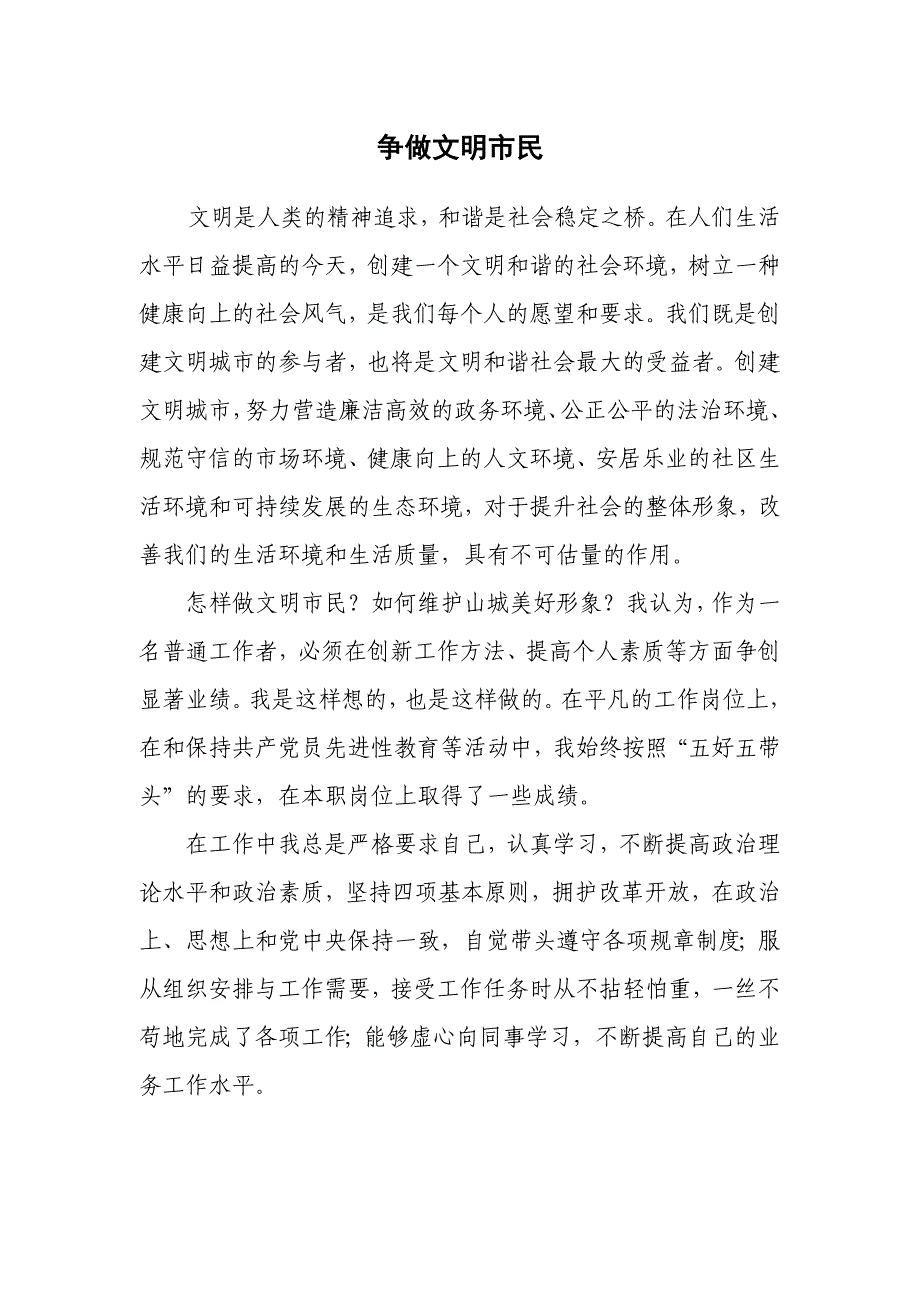 争做文明市民
文明是人类的精神追求，和谐是社会稳定之桥。在人们生活
水平日益提高的今天，创建一个文明和谐的社会环境，树立一种
健康向上的社会风气，是我们每个人的愿望和要求。我们既是创
建文明城市的参与者，也将是文明和谐社会最大的受益者。创建
文明城市，努力营造廉洁高效的政务环境、公正公平的法治环境、
规范守信的市场环境、健康向上的人文环境、安居乐业的社区生
活环境和可持续发展的生态环境，对于提升社会的整体形象，改
善我们的生活环境和生活质量，具有不可估量的作用。
怎样做文明市民？如何维护山城美好形象？我认为，作为一
名普通工作者，必须在创新工作方法、提高个人素质等方面争创
显著业绩。我是这样想的，也是这样做的。在平凡的工作岗位上，
在和保持共产党员先进性教育等活动中，我始终按照“五好五带
头”的要求，在本职岗位上取得了一些成绩。
在工作中我总是严格要求自己，认真学习，不断提高政治理
论水平和政治素质，坚持四项基本原则，拥护改革开放，在政治
上、思想上和党中央保持一致，自觉带头遵守各项规章制度；服
从组织安排与工作需要，接受工作任务时从不拈轻怕重，一丝不
苟地完成了各项工作；能够虚心向同事学习，不断提高自己的业
务工作水平。